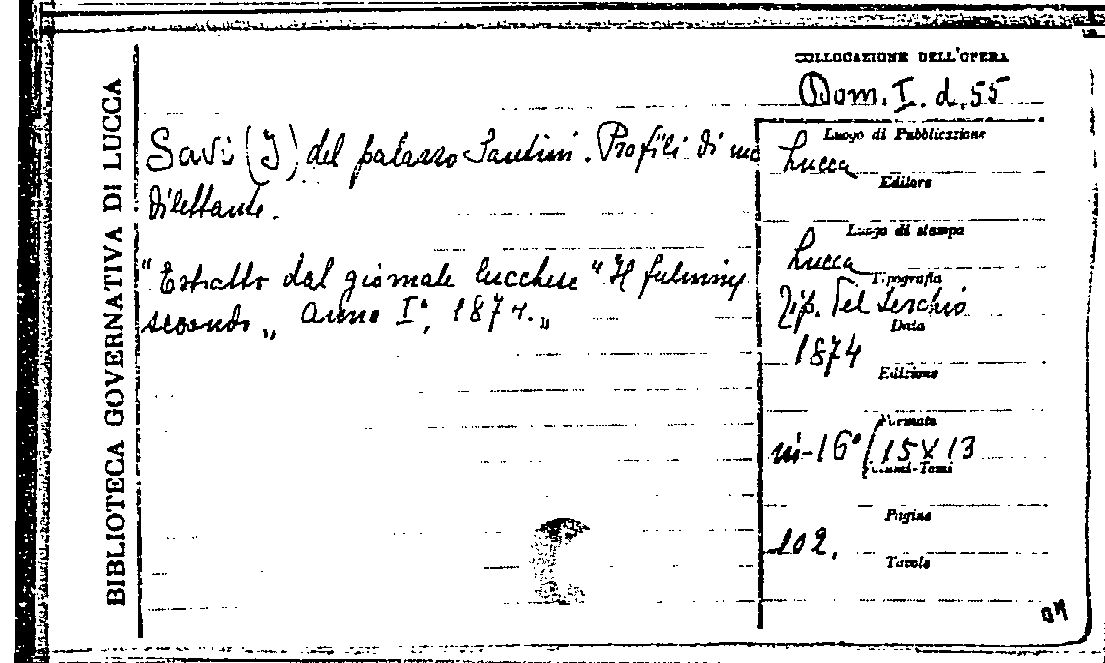 BIBLIOTECA GOVERNATIVA DI LUCCA
COLLOCAZIONE DELL'OPERA
Dom. I. d. 55
Savi (I) del palazzo Santini. Profili di un
dilettante.
"Estratto dal giornale lucchese "Il fulmine
secondo„ Anno I°, 1874.„
Luogo di Pubblicazione
Lucca
Editore
Luogo di stampa
Lucca
Tipografia
Tip. del Serchio
Data
1874
Edizione
Formato
in-16° (15 X 13
Volumi-Tomi
Pagine
102.
Tavole